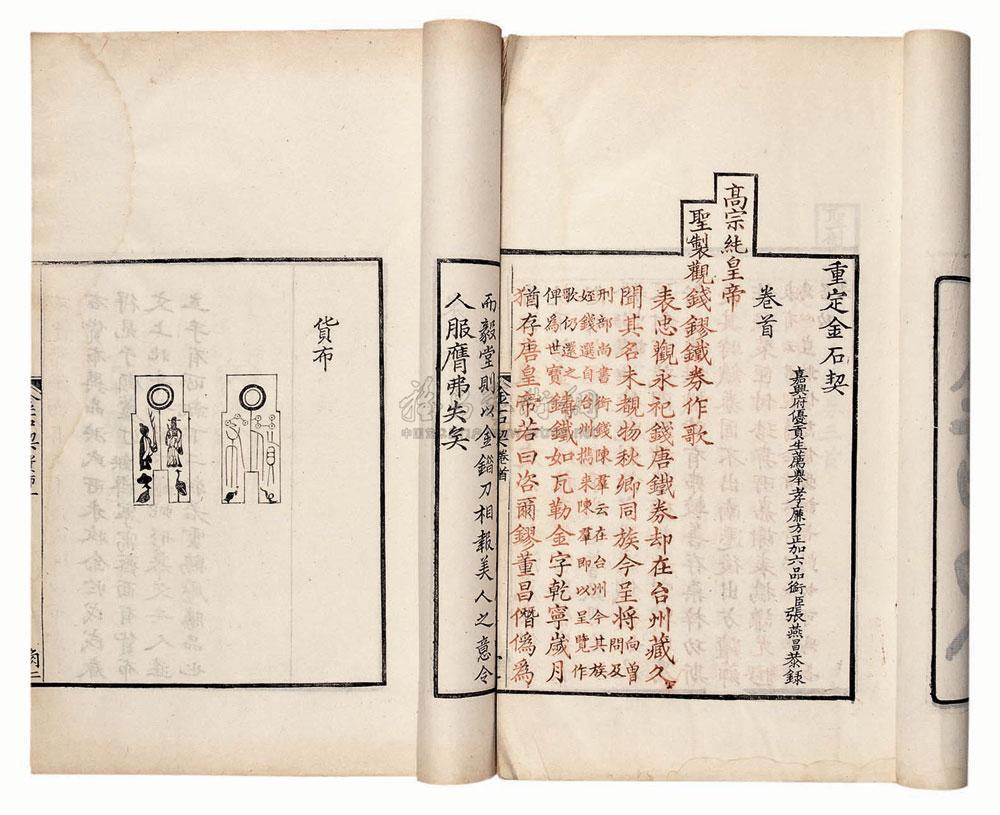 重定金石契
卷首
嘉興府優貢生薦舉孝廉方正加六品銜臣張燕昌恭錄
高宗純皇帝
聖製觀錢鏐鐵券作歌
表忠觀永祀錢唐鐵券却在台州藏久
聞其名未覩物秋卿同族今呈將向曾問及
刑部尚書銜錢陳羣云在台州今其族
姪錢選自台州攜來陳羣即以呈覽作
歌仍還之俾為世寶鑄鐵如瓦勒金字乾寧歲月
猶存唐皇帝若曰洛爾鏐董昌僭偽為
金石契卷首
而毅堂則以金錯刀相報美人之意令
人服膺弗失矣
貨布